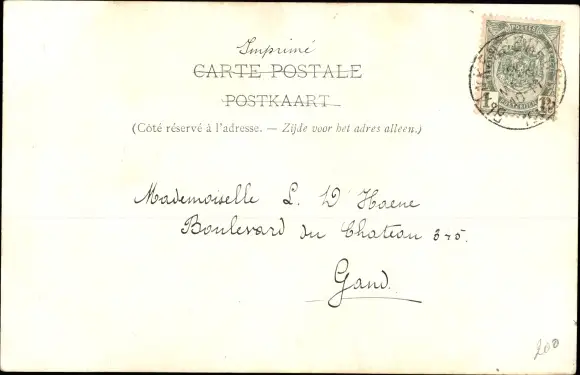 Imprimé
CARTE POSTALE
POSTKAART
(Côté réservé à l'adresse. — Zijde voor het adres alleen.)
Mademoiselle L. D'Haene
Boulevard du Chateau 375.
Gand.
200
POSTES
1